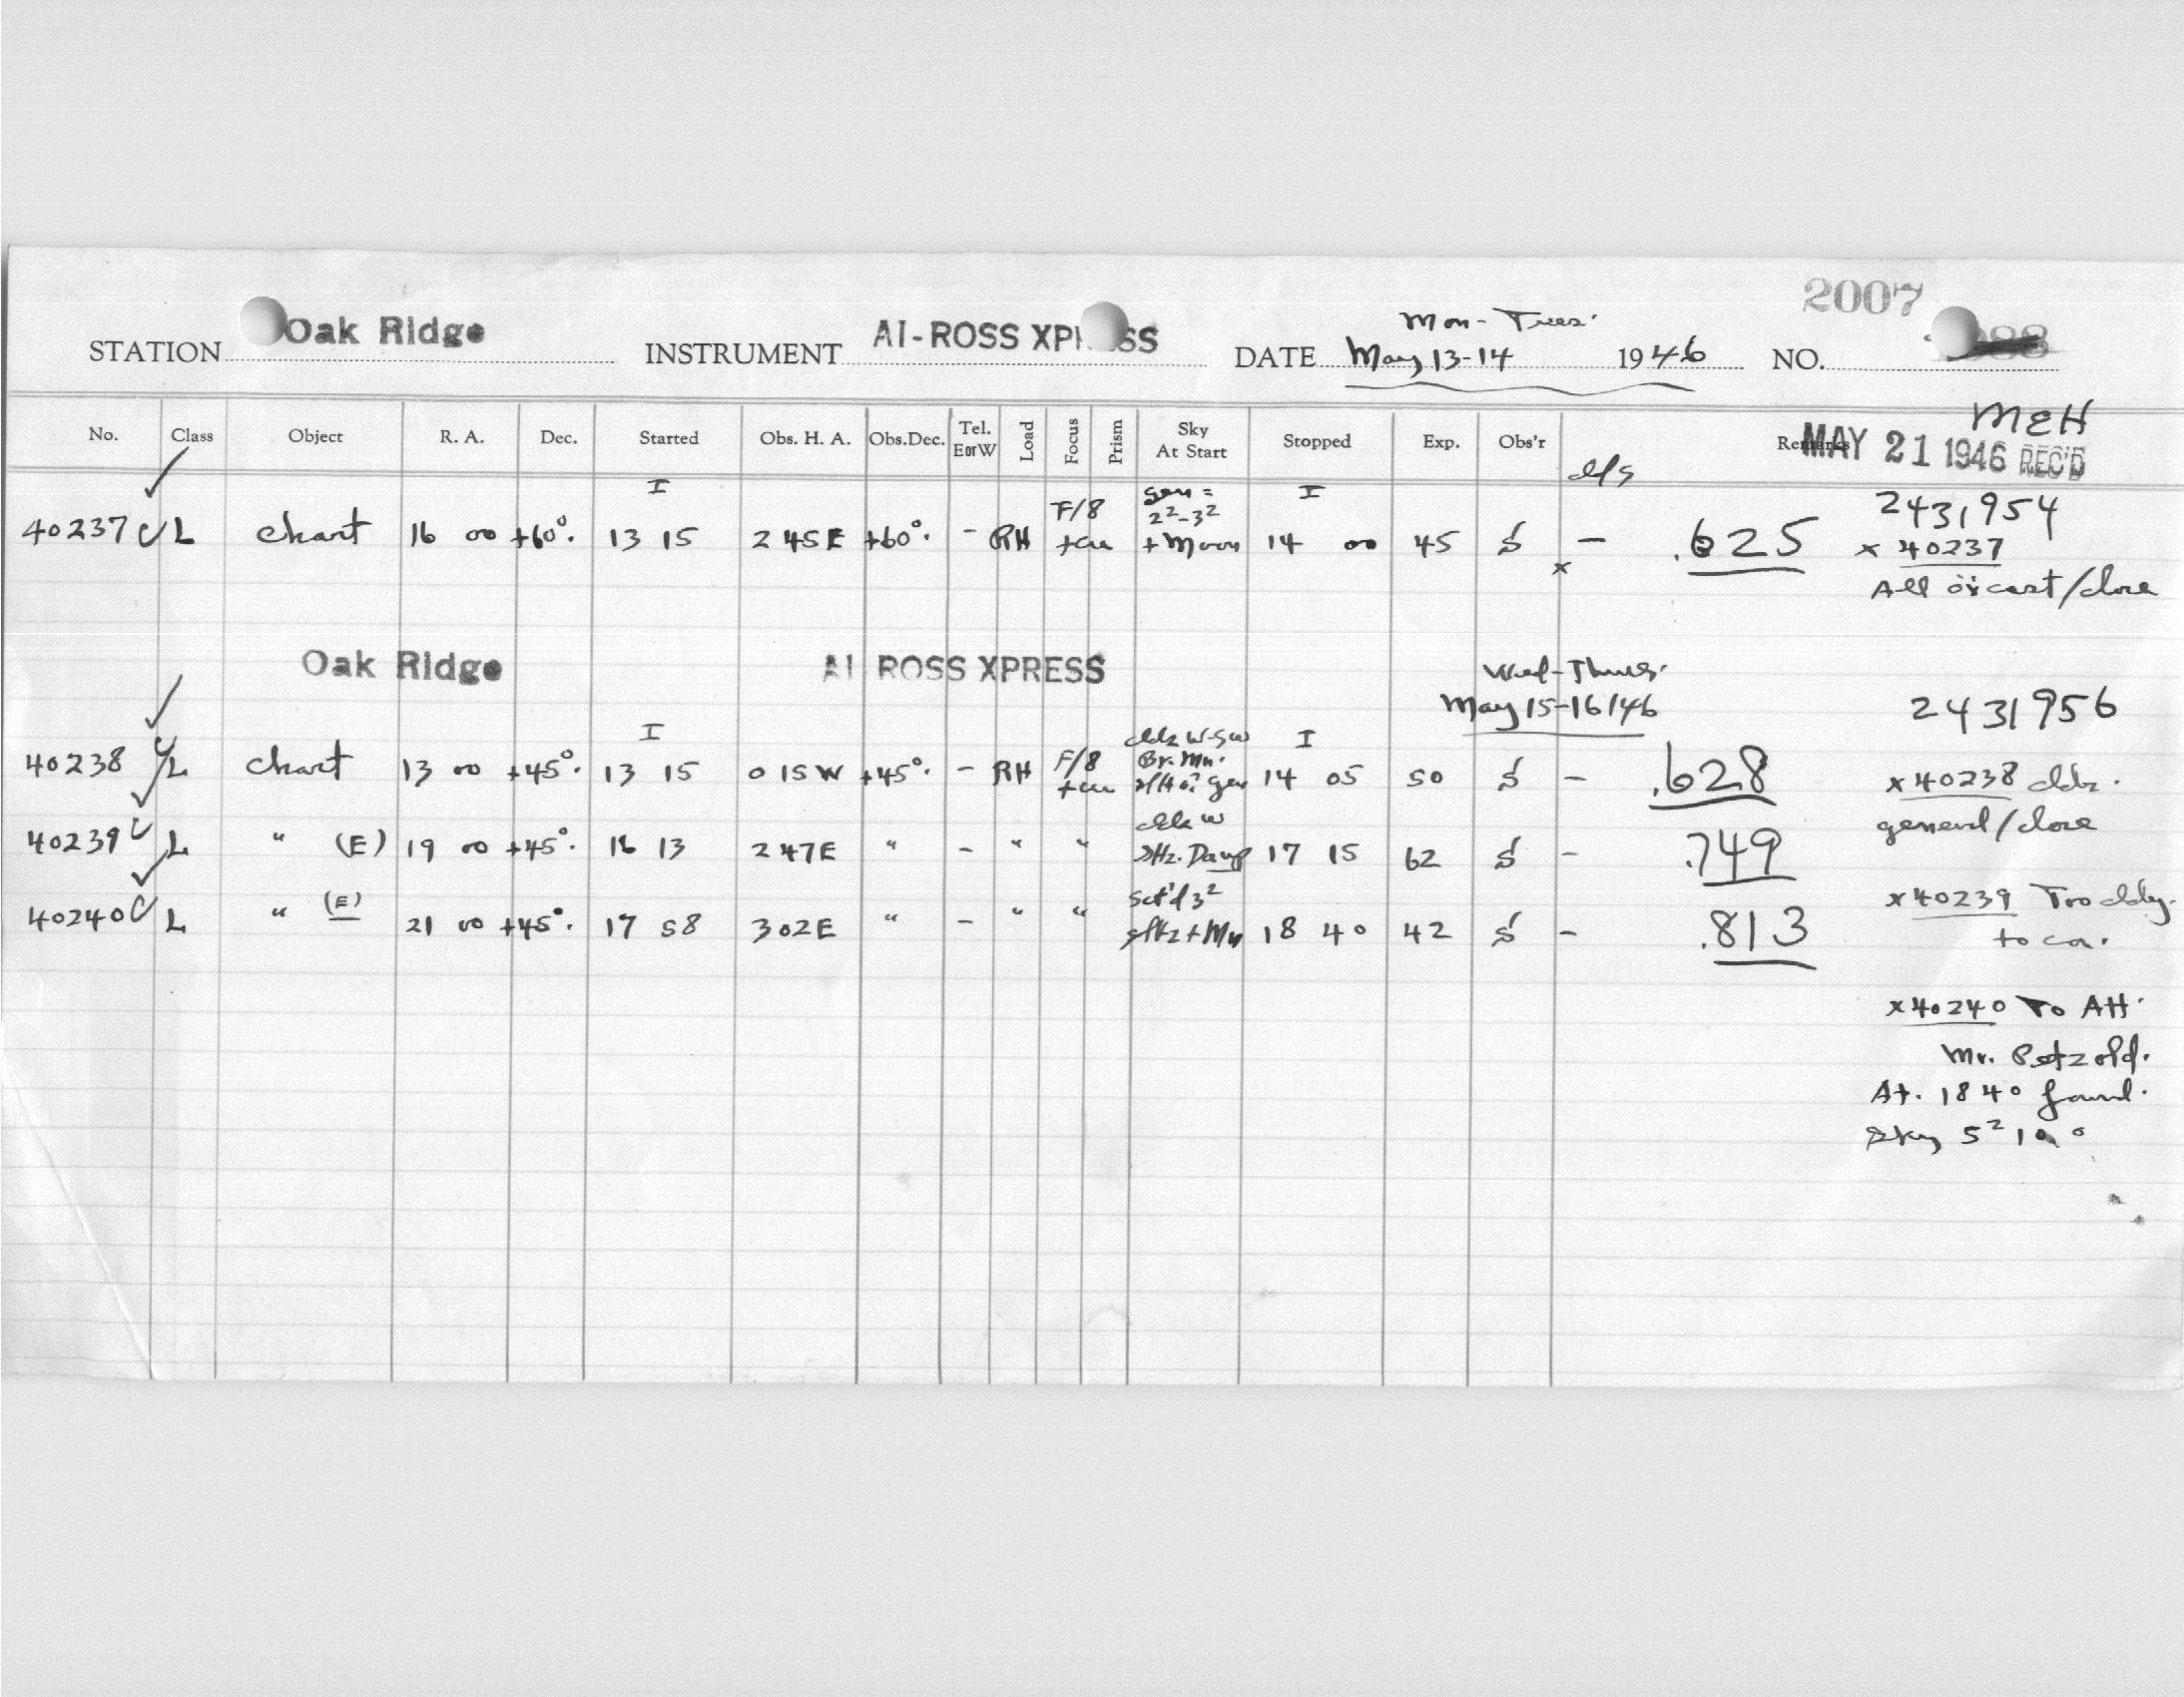 2007
Mon-Tues.
STATION Oak Ridge INSTRUMENT AI-ROSS XPRESS DATE May 13-14 1946 NO.
MEH
No. Class Object R. A. Dec. Started Obs. H. A. Obs.Dec. Tel. E or W Load Focus Prism Sky At Start Stopped Exp. Obs'r Remarks
MAY 21 1946 REC'D
d/s
I gen = I 2431954
40237 C L chart 16 00 +60°. 13 15 2 45 E +60°. - RH F/8 2²-3² + Moon 14 00 45 S - .625 x 40237
x All o'cast/close
Oak Ridge AI ROSS XPRESS Wed-Thurs.
May 15-16/46 2431956
I I
40238 C L chart 13 00 +45°. 13 15 0 15 W +45°. - RH F/8 Br. Mn. 14 05 50 S - .628 x 40238 cldr.
general/close
40239 C L " (E) 19 00 +45°. 16 13 2 47 E " - " " Damp 17 15 62 S - .749
x 40239 Too cldy.
to con.
40240 C L " (E) 21 00 +45°. 17 58 3 02 E " - " " Sct'd 3² slHz + Mn 18 40 42 S - .813
x 40240 To AH.
Mr. Petzold.
At. 18 40 found.
Sky 5²